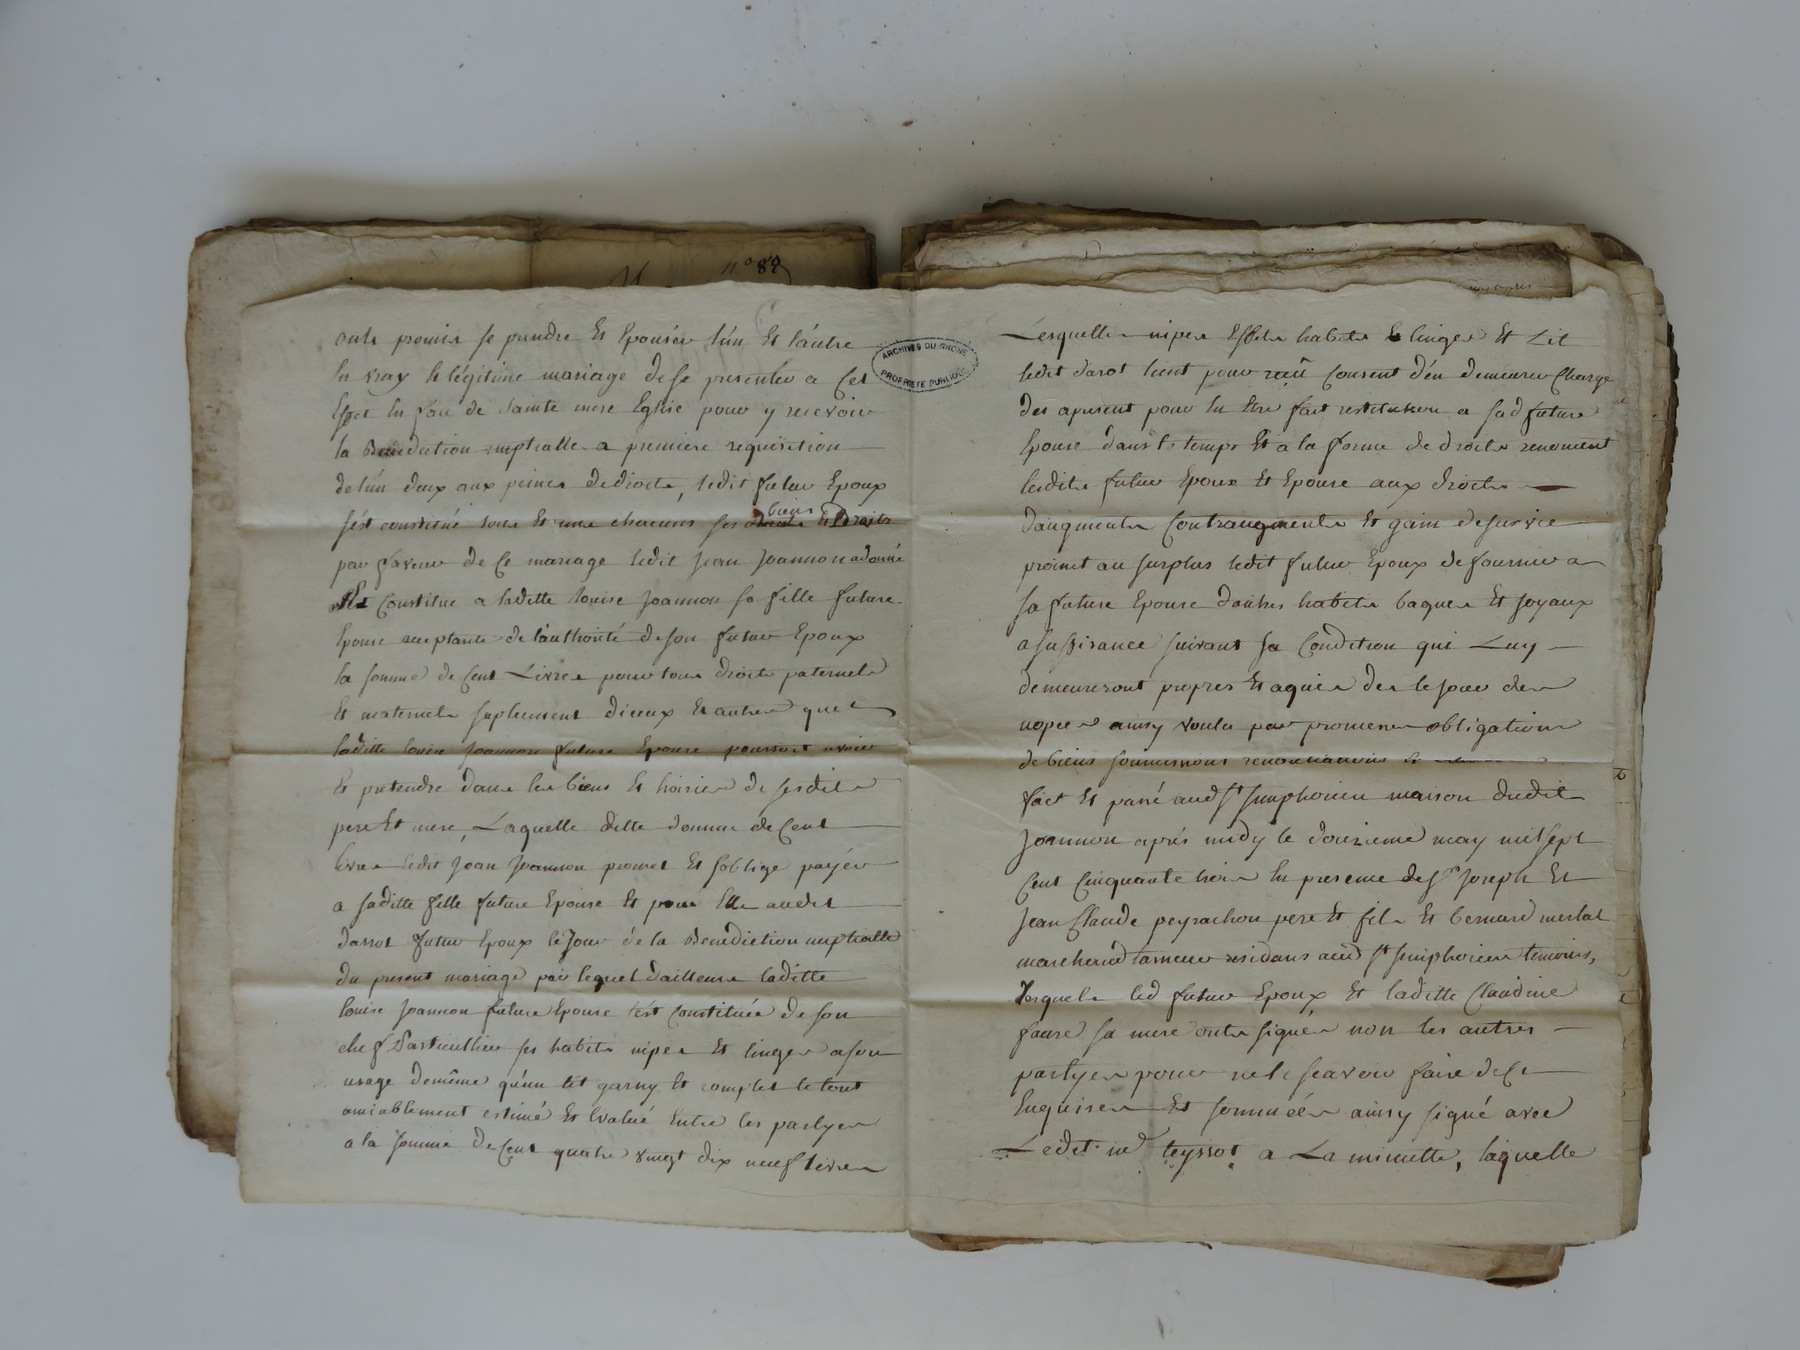 n° 88
onts promis se prendre Et Epouser l'un Et l'autre
En vray & légitime mariage de se presenter a Cet
Effet En face de sainte mere Eglise pour y recevoir
la Benediction nuptialle a premiere requisition
de l'un deux aux peines de droits, ledit futur Epoux
biens
s'est constitué tous Et uns chacuns ses Et Droits
par faveur de Ce mariage ledit Jean Joannon a donné
Et Constitue a laditte louise Joannon sa fille future
Epouse acceptante de l'authorité de son futur Epoux
la somme de Cent Livres pour tous droits paternels
Et maternels suplement diceux Et autres que
laditte louise Joannon future Epouse pourroit avoir
Et pretendre dans les biens Et hoiries de sesdits
pere Et mere, Laquelle ditte somme de Cent
livres ledit Jean Joannon promet Et s'oblige payér
a saditte fille future Epouse Et pour Elle audit
darrot futur Epoux le Jour de la Benediction nuptialle
du present mariage par lequel d'ailleurs laditte
louise Joannon future Epouse s'est Constituée de son
chef Particullier ses habits nipes Et linges a son
usage de même qu'un lit garny Et complet le tout
amiablement estimé Et Evalué Entre les partyes
a la somme de Cent quatre vingt dix neuf livres
ARCHIVES DU RHONE
PROPRIETE PUBLIQUE
Lesquelles nipes Effets habits & linges Et Lit
ledit darot tient pour reçû Consent d'en demeurer Chargé
des apresent pour En Etre fait restitution a sad future
Epouse dans le temps Et a la forme de droits renoncent
lesdits futur Epoux Et Epouse aux droits
daugments Contraugments Et gain de survie
promet au surplus ledit futur Epoux de fournir a
sa future Epouse d'autres habits bagues Et Joyaux
a suffisance suivant sa Condition qui Luy
demeureront propres Et aquis des le Jour des
nopces ainsy voulu par promesses obligations
de biens soumissions renonciations &
fait Et passé aud St simphorien maison dudit
Joannon aprés midy le douzieme may mil sept
Cent Cinquante trois En presence de Sr Joseph Et
Jean Claude peyrachon pere Et fils Et bernard merlat
marchand tanneur residans aud St simphorien temoins,
lesquels led futur Epoux Et laditte Claudine
faure sa mere onts signés non les autres
partyes pour ne le scavoir faire de Ce
Enquises Et sommées ainsy signé avec
Ledit me teyssot a La minutte, laquelle